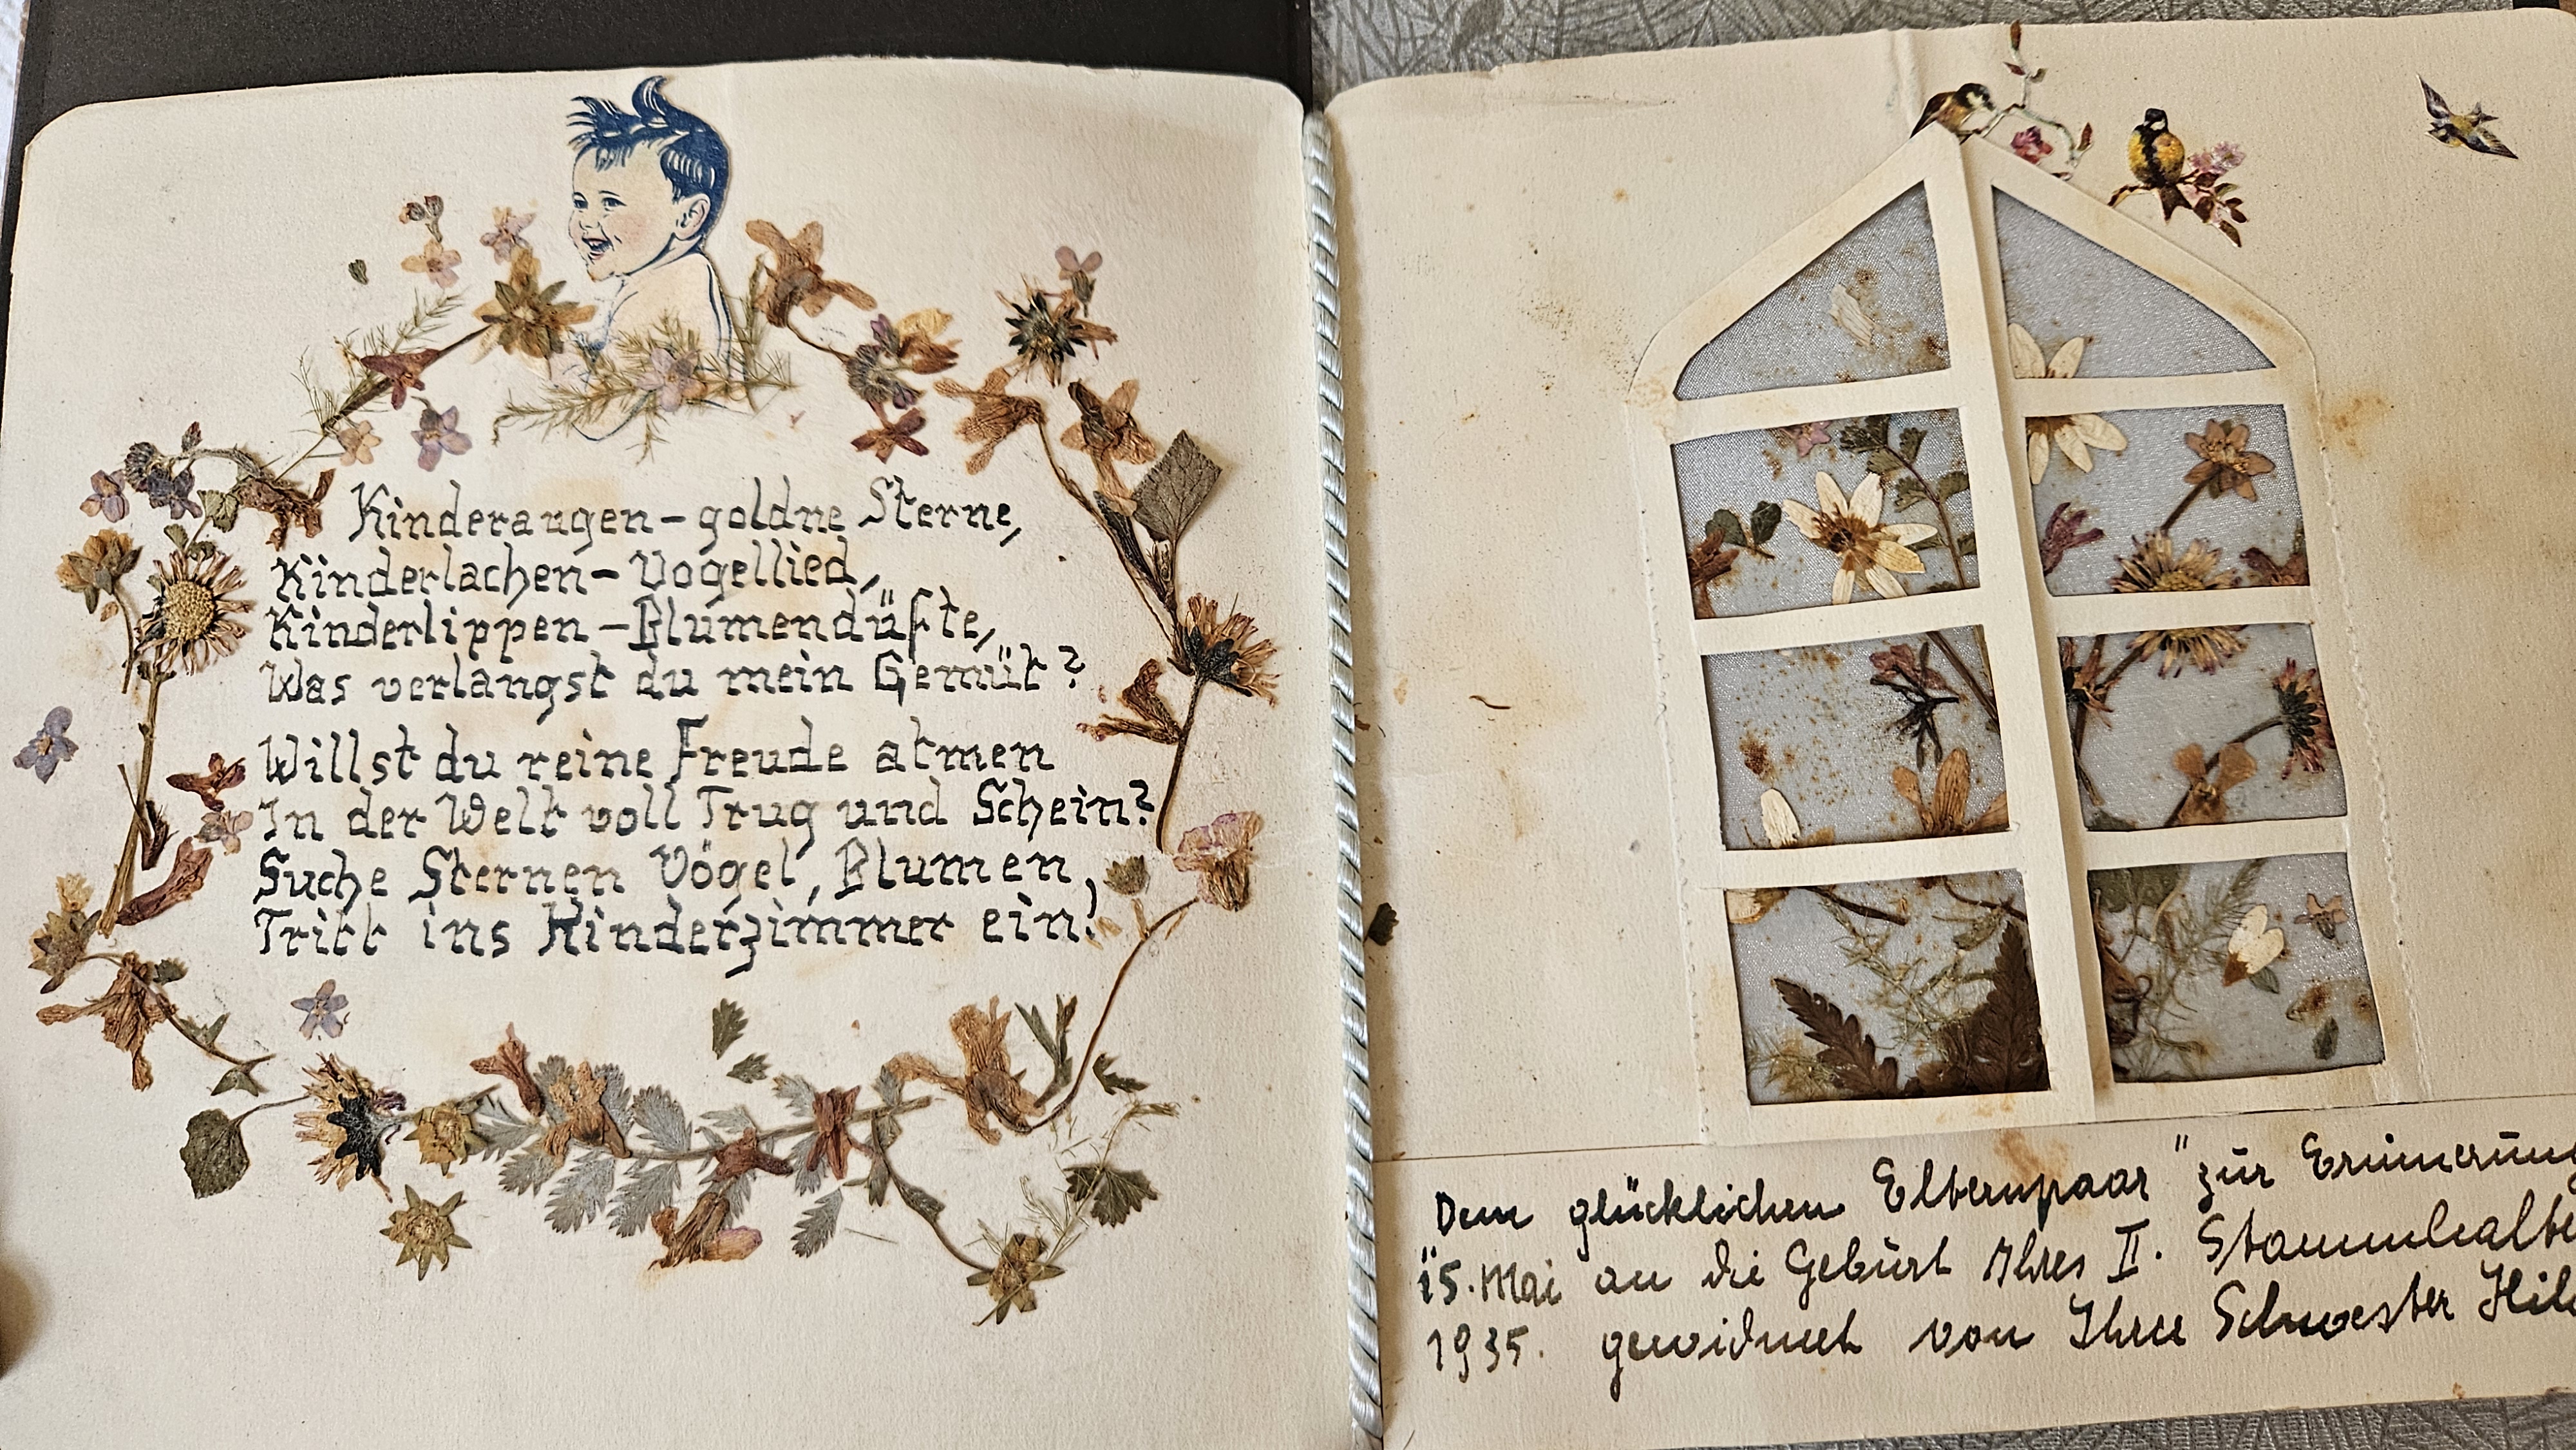 Kinderaugen – goldne Sterne,
Kinderlachen – Vogellied,
Kinderlippen – Blumendüfte,
Was verlangst du mein Gemüt?
Willst du reine Freude atmen
In der Welt voll Trug und Schein?
Suche Sternen Vögel, Blumen,
Tritt ins Kinderzimmer ein!
Dem glücklichen Elternpaar "zur Erinnerung
15. Mai an die Geburt Ihres II. Stammhalte
1935. gewidmet von Ihrer Schwester